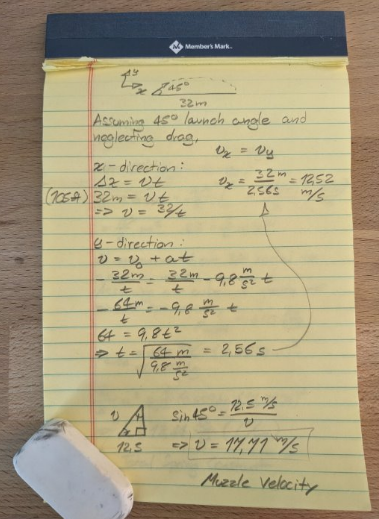 Member's Mark.
y
x
45°
32m
Assuming 45° launch angle and
neglecting drag,
v_x = v_y
x-direction:
Δx = vt
v_x = 32m/2,56s = 12,52 m/s
32m = vt
=> v = 32/t
y-direction:
v = v_0 + at
-32m/t = 32m/t - 9,8 m/s² t
-64m/t = -9,8 m/s² t
64 = 9,8t²
=> t = √(64 m/9,8 m/s²) = 2,56s
v
12.5
sin45° = 12.5 m/s / v
=> v = 17,71 m/s
Muzzle Velocity